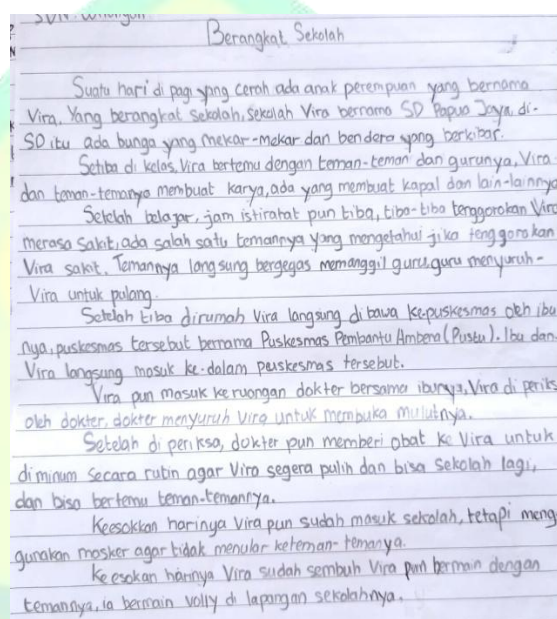 Berangkat Sekolah
Suatu hari di pagi yang cerah ada anak perempuan yang bernama
Vira. Yang berangkat sekolah, sekolah Vira bernama SD Papua Jaya, di-
SD itu ada bunga yang mekar-mekar dan bendera yang berkibar.
Setiba di kelas, Vira bertemu dengan teman-teman dan gurunya, Vira
dan teman-temanya membuat karya, ada yang membuat kapal dan lain-lainnya
Setelah belajar, jam istiratat pun tiba, tiba-tiba tenggorokan Vira
merasa sakit, ada salah satu temannya yang mengetahui jika tenggorokan
Vira sakit. Temannya langsung bergegas memanggil guru, guru menyuruh-
Vira untuk pulang.
Setelah tiba dirumah Vira langsung di bawa kepuskesmas oleh ibu
nya, puskesmas tersebut bernama Puskesmas Pembantu Ambena (Pustu). Ibu dan
Vira langsung masuk ke-dalam puskesmas tersebut.
Vira pun masuk ke ruangan dokter bersama ibunya, Vira di periks
oleh dokter, dokter menyuruh Vira untuk membuka mulutnya.
Setelah di periksa, dokter pun memberi obat ke Vira untuk
diminum secara rutin agar Vira segera pulih dan bisa sekolah lagi,
dan bisa bertemu teman-temannya.
Keesokkan harinya Vira pun sudah masuk sekolah, tetapi meng
gunakan masker agar tidak menular keteman-temanya.
Keesokan harinya Vira sudah sembuh Vira pun bermain dengan
temannya, ia bermain volly di lapangan sekolahnya.